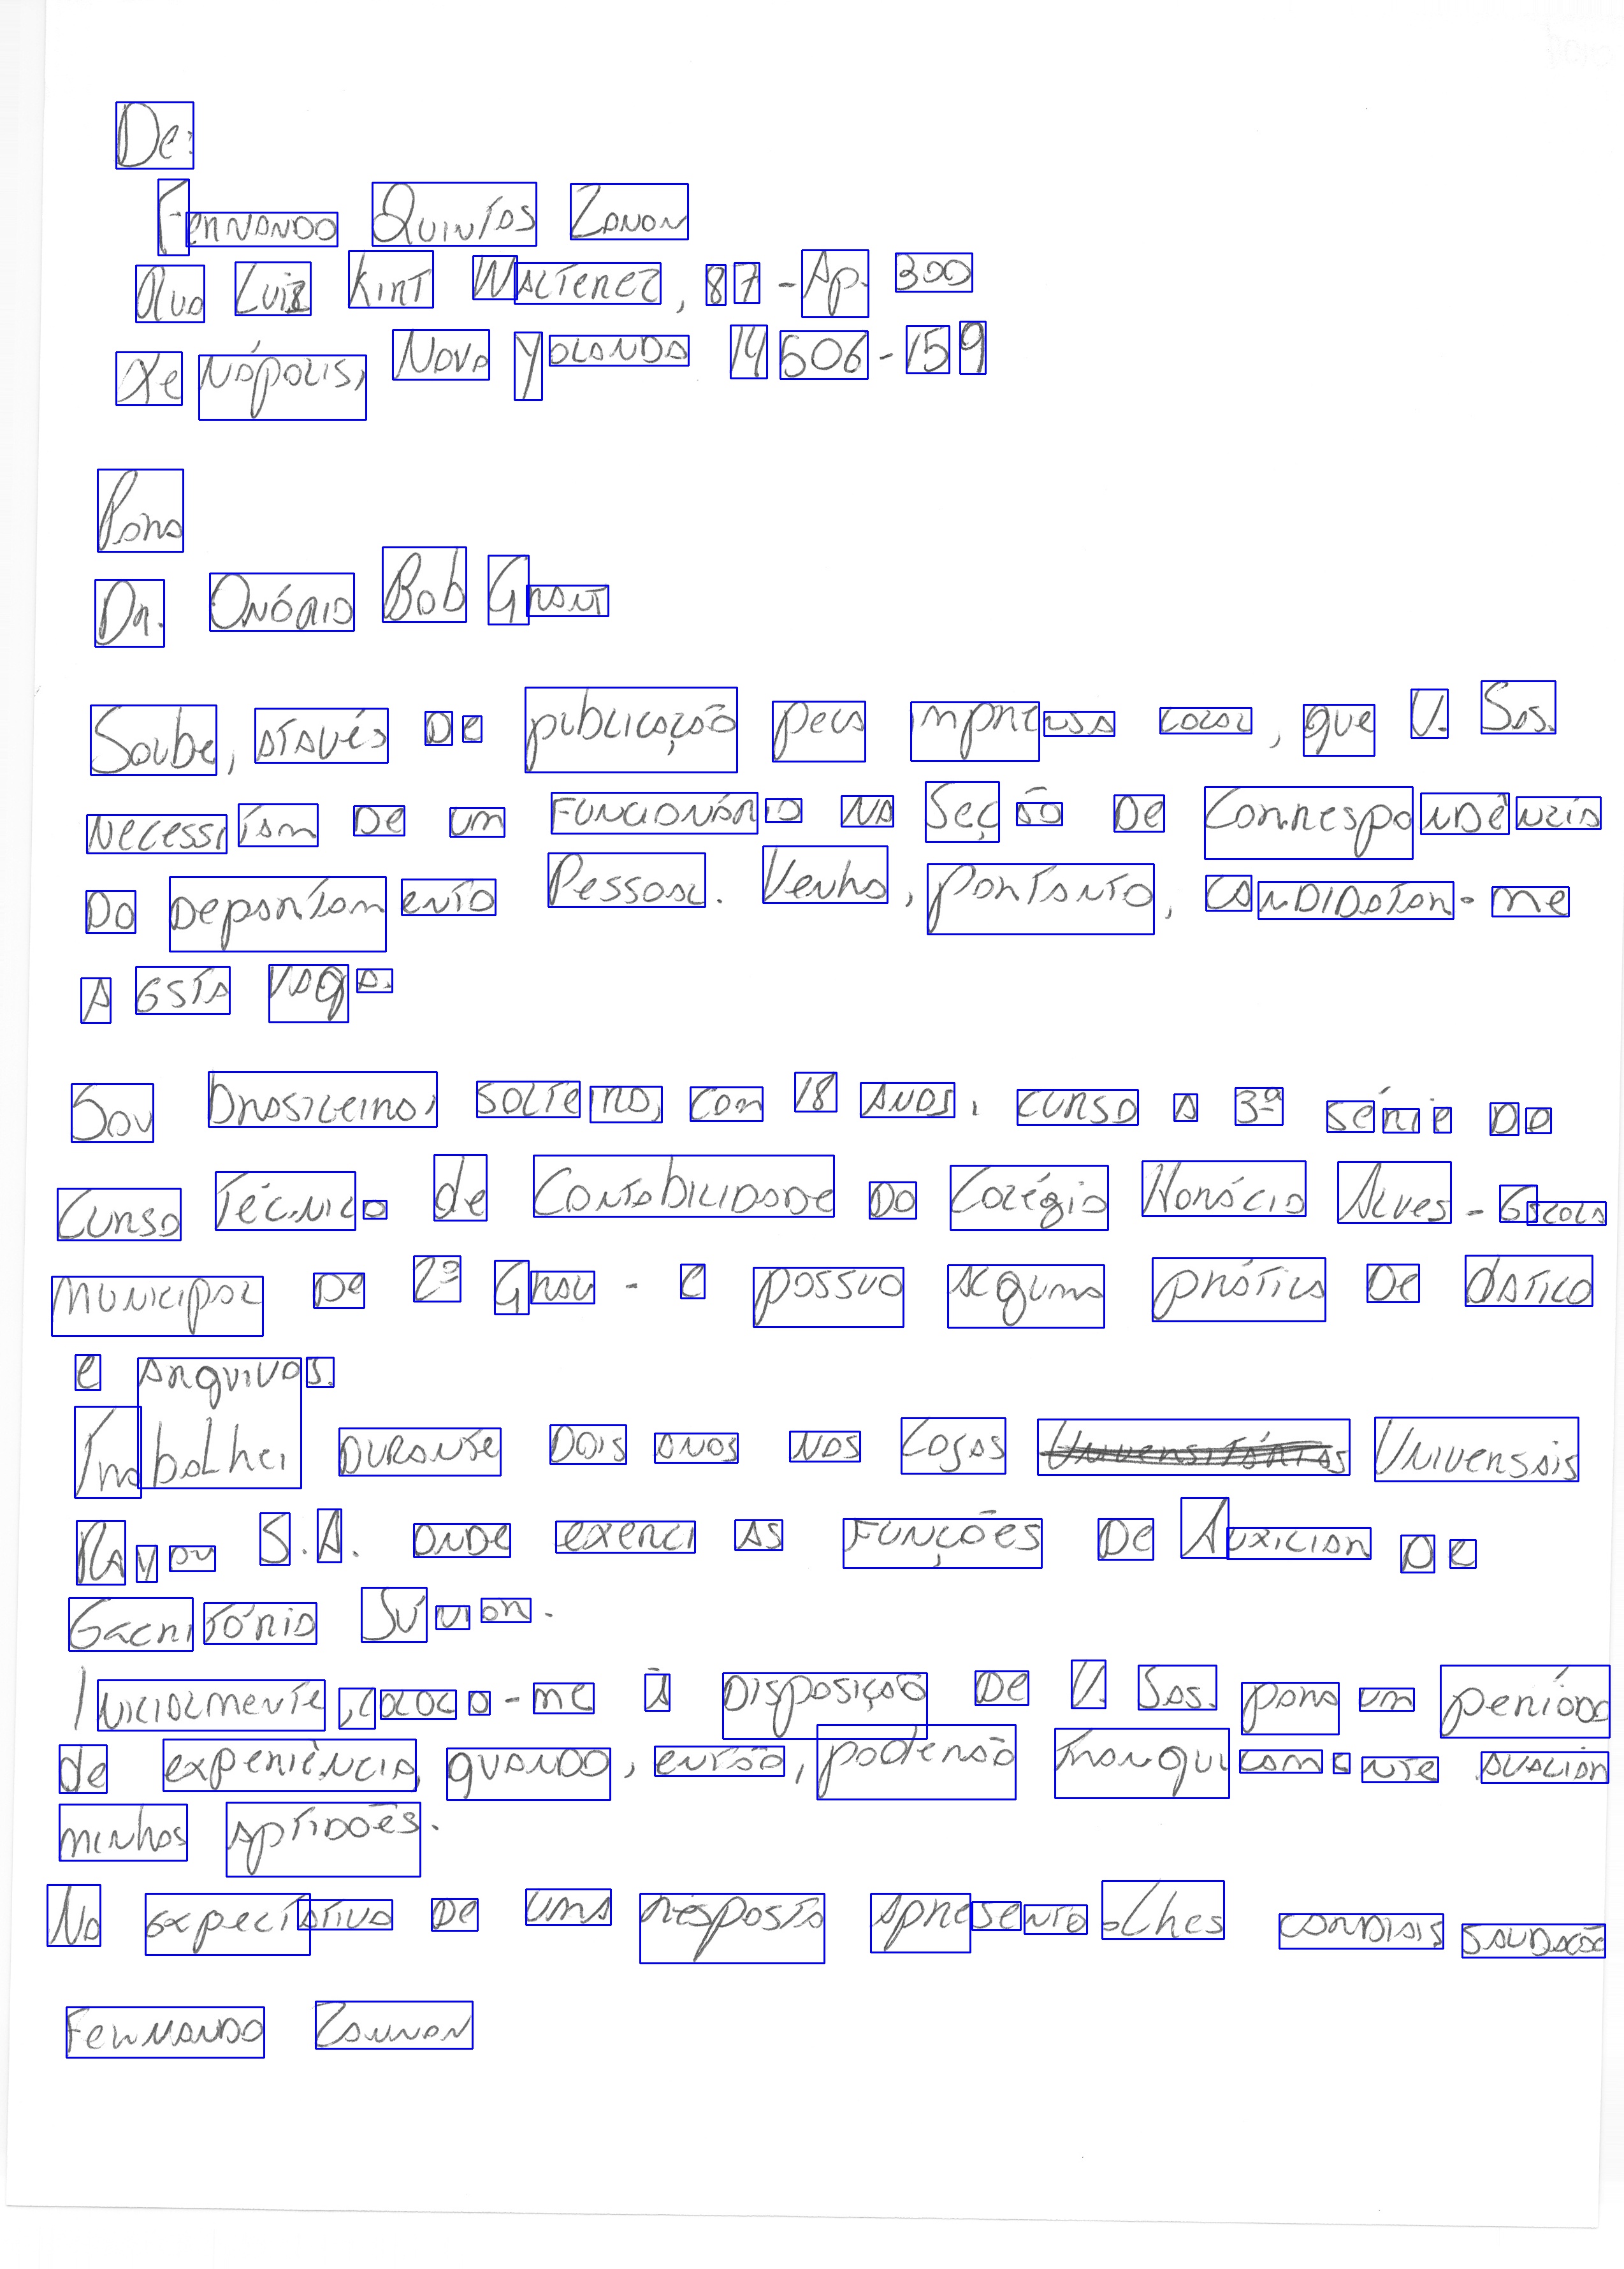 De:
Fernando Quintas Zanon
Rua Luiz Kint Walterez, 87 - Ap. 300
Xenópolis, Nova Yolanda 14506-159
Para
Dr. Onório Bob Grant
Soube, através de publicação pela imprensa local, que V. Sas.
necessitam de um funcionário na Seção de Correspondência
do departamento Pessoal. Venho, portanto, candidatar-me
a esta vaga.
Sou brasileiro, solteiro, com 18 anos. curso a 3ª série do
Curso Técnico de Contabilidade do Colégio Honócio Alves - Escola
municipal de 2º Grau - e possuo alguma prática de
e arquivos.
Trabalhei durante dois anos nas Casas Universais
Rayou S.A. onde exerci as funções de Auxiliar de
Escritório Júnior.
Inicialmente, coloco-me à disposição de V. Sas. para um período
de experiência, quando, então, poderão tranquilamente avaliar
minhas aptidões.
Na expectativa de uma resposta apresento-lhes cordiais
Fernnando Zannon